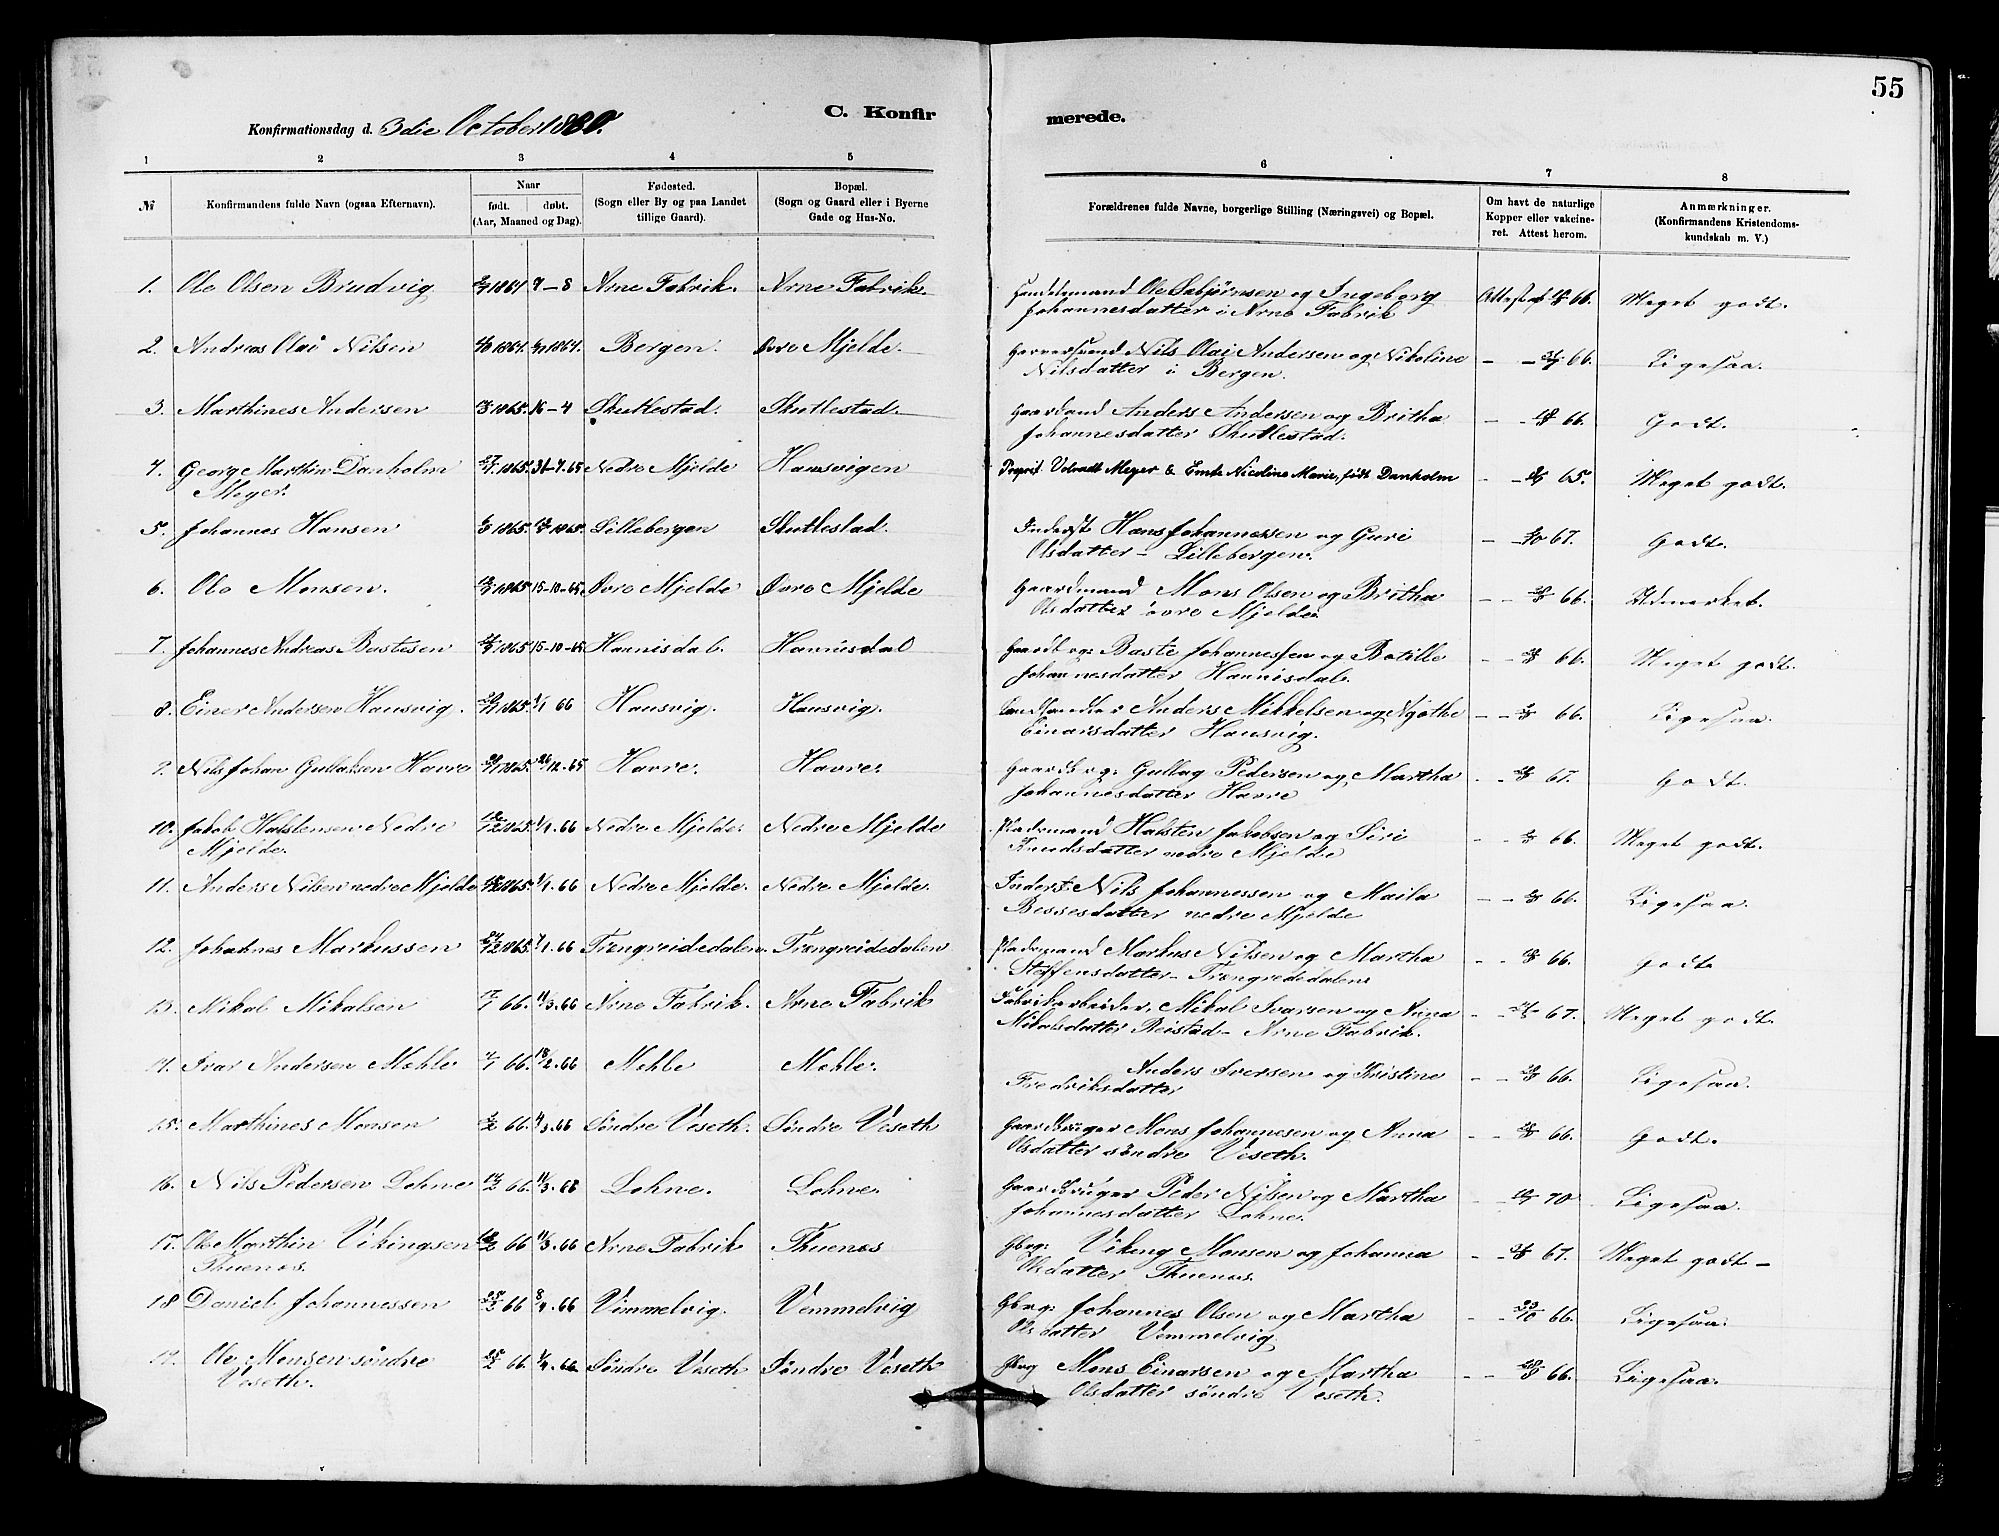 55
C. Konfirmerede.
Konfirmationsdag d. 3die October 1880.
1 2 3 4 5 6 7 8
№
Konfirmandens fulde Navn (ogsaa Efternavn).
Naar
født. døbt.
(Aar, Maaned og Dag).
Fødested.
(Sogn eller By og paa Landet
tillige Gaard).
Bopæl.
(Sogn og Gaard eller i Byerne
Gade og Hus-No.
Forældrenes fulde Navne, borgerlige Stilling (Næringsvei) og Bopæl.
Om havt de naturlige
Kopper eller vakcine-
ret. Attest herom.
Anmærkninger.
(Konfirmandens Kristendoms-
kundskab m. V.)
1. Ole Olsen Brudvig 1864 Arne Fabrik. Arne Fabrik. Ole Sebjörnsen og Ingeborg 66. Meget godt.
Johannesdatter i Arne Fabrik
2. Andreas Olai Nilsen 1864. 1864. Bergen. Øvre Mjelde. Nils Olai Andersen og Nikoline - - 66. Ligesaa.
Nilsdatter i Bergen.
3. Marthines Andersen 1865. 16-4 Skutlestad. Skutlestad. Anders Andersen og Britha - - 66. Godt.
Johannesdatter Skutlestad.
4. George Marthin Danholm 1865. 31-7.65 Nedre Mjelde Hausvigen Propriet. Meyer & Nicoline Marie, født Danholm - - 65. Meget godt.
Meyer.
5. Johannes Hansen 1865. 1865. Lillebergen Skutlestad. Inderst Hans Johannessen og Guri - - 67. Godt.
Olsdatter - Lillebergen.
6. Ole Monsen. 1865 15-10-65. Øvre Mjelde Øvre Mjelde Gaardmand Mons Olsen og Britha - - 66. Udmærket.
Olsdatter øvre Mjelde.
7. Johannes Andreas Bastesen 1865 15-10-65 Hannisdal. Hannisdal Baste Johannessen og Botille - - 66. Meget godt.
Johannesdatter Hannisdal.
8. Einer Andersen Hausvig. 1865. 1/1 66 Hausvig. Hausvig. Landhandler Anders Mikkelsen og Agothe - - 66. Ligesaa.
Einarsdatter Hausvig.
9. Nils Johan Gullaksen Havre 1865. 26/12.65 Havre. Havre. Gullag Pedersen og Martha - - 67. Godt.
Johannesdatter Havre
10. Jakob Halstensen Nedre 1865. 1/1.66 Nedre Mjelde. Nedre Mjelde Pladsmand Halsten Jakobsen og Siri - - 66. Meget godt.
Mjelde. Knudsdatter nedre Mjelde
11. Anders Nilsen nedre Mjelde 1865. 1/1.66 Nedre Mjelde. Nedre Mjelde. Inderst Nils Johannessen og Maila - - 66. Ligesaa.
Bessesdatter nedre Mjelde
12. Johannes Markussen 1865. 1.66 Trengreidedalen. Trengreidedalen Pladsmand Markus Nilsen og Martha - - 66. godt
Steffensdatter - Trengredalen
13. Mikal Mikalsen 66. 11/3.66 Arne Fabrik. Arne Fabrik Fabrikarbeider Mikal Ivarsen og Anna - - 67. Meget godt.
Mikalsdatter Reistad - Arne Fabrik.
14. Ivar Andersen Mehle 66. 18/2.66 Mehle Mehle. Anders Iversen og Kristine - - 66. Ligesaa.
Fredriksdatter
15. Marthines Monsen 66. 4/3.66 Söndre Veseth. Söndre Veseth Gaardbruger Mons Johannesen og Anna - - 66. Godt.
Olsdatter söndre Veseth.
16. Nils Pedersen Lohne 66. 11/3.66 Lohne. Lohne. Gaardbruger Peder Nilsen og Martha - - 70 Ligesaa.
Johannesdatter Lohne.
17. Ole Marthin Vikingsen 66 11/3.66 Arne Fabrik Thuenes Gbrg: Viking Monsen og Johanna - - 67. Meget godt -
Thuenes. Olsdatter Thuenes.
18 Daniel Johannessen 66 8/4.66 Vimmelvig. Vemmelvig Gbrg: Johannes Olsen og Martha - - 23/10 66. Ligesaa.
Olsdatter Vemmelvig.
19. Ole Monsen söndre 66. 66 Söndre Veseth Söndre Veseth Gbrg Mons Einarsen og Martha - - 66. Ligesaa.
Veseth. Olsdatter söndre Veseth.